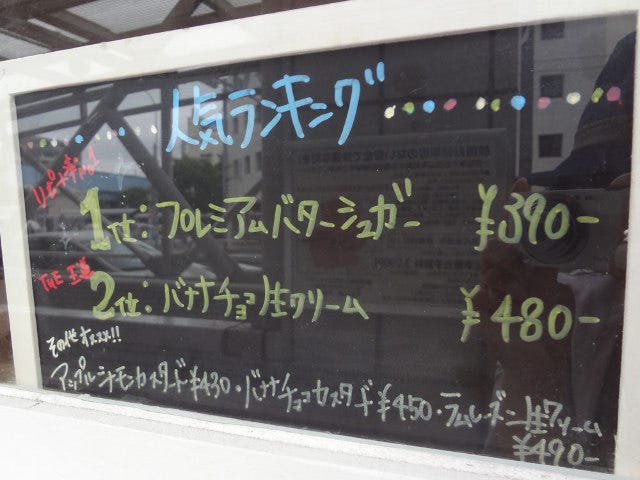 人気ランキング
リピート率No.1
1位:プレミアムバターシュガー ¥390-
THE 王道
2位:バナナチョコ生クリーム ¥480-
その他オススメ!!
アップルシナモンカスタード¥430・バナナチョコカスタード¥450・ラムレーズン生クリーム
¥490-